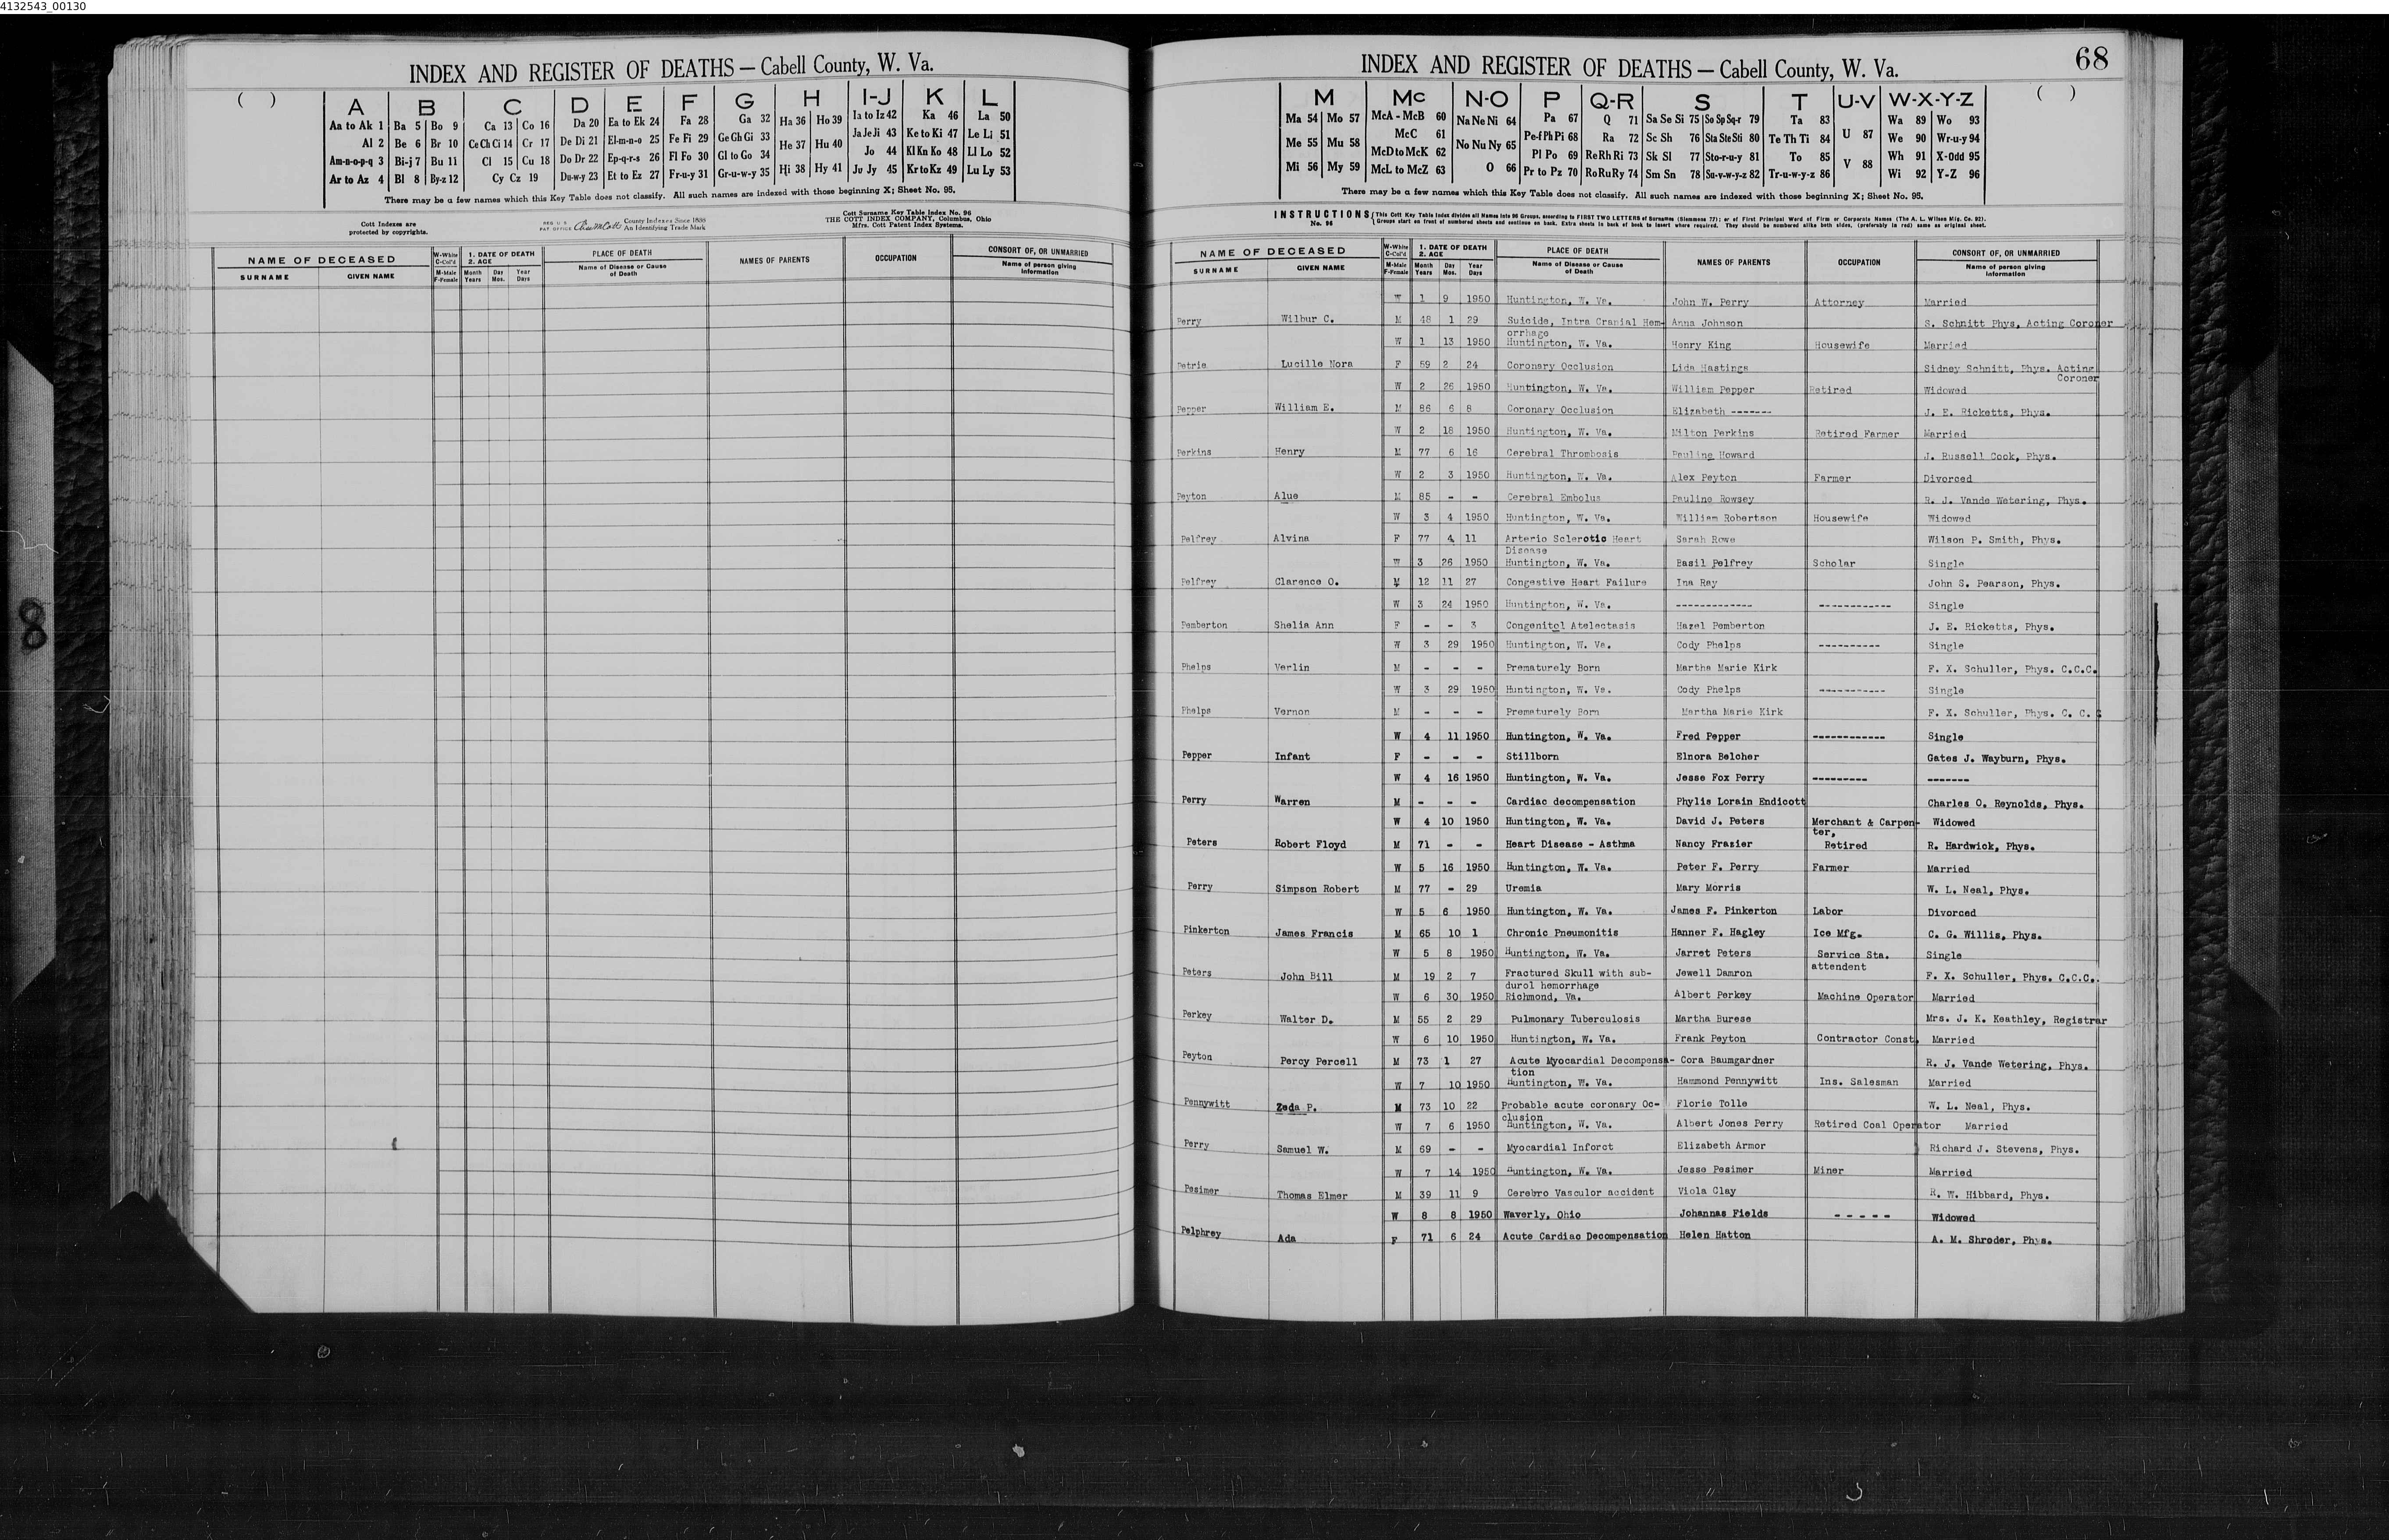 4132543_00130
INDEX AND REGISTER OF DEATHS — Cabell County, W. Va.
( )
A B C D E F G H I-J K L
Aa to Ak 1 Ba 5 Bo 9 Ca 13 Co 16 Da 20 Ea to Ek 24 Fa 28 Ga 32 Ha 36 Ho 39 Ia to Iz 42 Ka 46 La 50
Al 2 Be 6 Br 10 Ce Ch Ci 14 Cr 17 De Di 21 El-m-n-o 25 Fe Fi 29 Ge Gh Gi 33 He 37 Hu 40 Ja Je Ji 43 Ke to Ki 47 Le Li 51
Am-n-o-p-q 3 Bi-j 7 Bu 11 Cl 15 Cu 18 Do Dr 22 Ep-q-r-s 26 Fl Fo 30 Gl to Go 34 Hi 38 Hy 41 Jo 44 Kl Kn Ko 48 Ll Lo 52
Ar to Az 4 Bl 8 By-z 12 Cy Cz 19 Du-w-y 23 Et to Ez 27 Fr-u-y 31 Gr-u-w-y 35 Ju Jy 45 Kr to Kz 49 Lu Ly 53
There may be a few names which this Key Table does not classify. All such names are indexed with those beginning X; Sheet No. 95.
Cott Indexes are
protected by copyrights.
REG. U. S.
PAT. OFFICE
County Indexes Since 1888
An Identifying Trade Mark
Cott Surname Key Table Index No. 96
THE COTT INDEX COMPANY, Columbus, Ohio
Mfrs. Cott Patent Index Systems.
NAME OF DECEASED
SURNAME GIVEN NAME
W-White
C-Col'd
M-Male
F-Female
1. DATE OF DEATH
2. AGE
Month Day Year
Years Mos. Days
PLACE OF DEATH
Name of Disease or Cause
of Death
NAMES OF PARENTS
OCCUPATION
CONSORT OF, OR UNMARRIED
Name of person giving
information
8
INDEX AND REGISTER OF DEATHS — Cabell County, W. Va.
68
( )
M Mc N-O P Q-R S T U-V W-X-Y-Z
Ma 54 Mo 57 McA - McB 60 Na Ne Ni 64 Pa 67 Q 71 Sa Se Si 75 So Sp Sq-r 79 Ta 83 U 87 Wa 89 Wo 93
Me 55 Mu 58 McC 61 No Nu Ny 65 Pe-f Ph Pi 68 Ra 72 Sc Sh 76 Sta Ste Sti 80 Te Th Ti 84 V 88 We 90 Wr-u-y 94
Mi 56 My 59 McD to McK 62 O 66 Pl Po 69 Re Rh Ri 73 Sk Sl 77 Sto-r-u-y 81 To 85 Wh 91 X-Odd 95
McL to McZ 63 Pr to Pz 70 Ro Ru Ry 74 Sm Sn 78 Su-v-w-y-z 82 Tr-u-w-y-z 86 Wi 92 Y-Z 96
There may be a few names which this Key Table does not classify. All such names are indexed with those beginning X; Sheet No. 95.
INSTRUCTIONS
No. 96
This Cott Key Table Index divides all Names into 96 Groups, according to FIRST TWO LETTERS of Surnames (Siemmons 77); or of First Principal Word of Firm or Corporate Names (The A. L. Wilson Mfg. Co. 92).
Groups start on front of numbered sheets and continue on back. Extra sheets in back of book to insert where required. They should be numbered alike both sides, (preferably in red) same as original sheet.
NAME OF DECEASED
SURNAME GIVEN NAME
W-White
C-Col'd
M-Male
F-Female
1. DATE OF DEATH
2. AGE
Month Day Year
Years Mos. Days
PLACE OF DEATH
Name of Disease or Cause
of Death
NAMES OF PARENTS
OCCUPATION
CONSORT OF, OR UNMARRIED
Name of person giving
information
W 1 9 1950 Huntington, W. Va. John W. Perry Attorney Married
Perry Wilbur C. M 48 1 29 Suicide, Intra Cranial Hem- Anna Johnson S. Schnitt Phys, Acting Coroner
orrhage
W 1 13 1950 Huntington, W. Va. Henry King Housewife Married
Petrie Lucille Nora F 59 2 24 Coronary Occlusion Lida Hastings Sidney Schnitt, Phys. Acting
Coroner
W 2 26 1950 Huntington, W. Va. William Pepper Retired Widowed
Pepper William E. M 86 6 8 Coronary Occlusion Elizabeth ------- J. E. Ricketts, Phys.
W 2 18 1950 Huntington, W. Va. Milton Perkins Retired Farmer Married
Perkins Henry M 77 6 16 Cerebral Thrombosis Pauling Howard J. Russell Cook, Phys.
W 2 3 1950 Huntington, W. Va. Alex Peyton Farmer Divorced
Peyton Alue M 85 - - Cerebral Embolus Pauline Rowsey R. J. Vande Wetering, Phys.
W 3 4 1950 Huntington, W. Va. William Robertson Housewife Widowed
Pelfrey Alvina F 77 4 11 Arterio Sclerotic Heart Sarah Rowe Wilson P. Smith, Phys.
Disease
W 3 26 1950 Huntington, W. Va. Basil Pelfrey Scholar Single
Pelfrey Clarence O. M 12 11 27 Congestive Heart Failure Ina Ray John S. Pearson, Phys.
W 3 24 1950 Huntington, W. Va. ------------- ------------ Single
Pemberton Shelia Ann F - - 3 Congenitol Atelectasis Hazel Pemberton J. E. Ricketts, Phys.
W 3 29 1950 Huntington, W. Va. Cody Phelps ---------- Single
Phelps Verlin M - - - Prematurely Born Martha Marie Kirk F. X. Schuller, Phys. C.C.C.
W 3 29 1950 Huntington, W. Va. Cody Phelps ----------- Single
Phelps Vernon M - - - Prematurely Born Martha Marie Kirk F. X. Schuller, Phys. C. C. C
W 4 11 1950 Huntington, W. Va. Fred Pepper ------------ Single
Pepper Infant F - - - Stillborn Elnora Belcher Gates J. Wayburn, Phys.
W 4 16 1950 Huntington, W. Va. Jesse Fox Perry --------- -------
Perry Warren M - - - Cardiac decompensation Phylis Lorain Endicott Charles O. Reynolds, Phys.
W 4 10 1950 Huntington, W. Va. David J. Peters Merchant & Carpen- Widowed
ter,
Peters Robert Floyd M 71 - - Heart Disease - Asthma Nancy Frazier Retired R. Hardwick, Phys.
W 5 16 1950 Huntington, W. Va. Peter F. Perry Farmer Married
Perry Simpson Robert M 77 - 29 Uremia Mary Morris W. L. Neal, Phys.
W 5 6 1950 Huntington, W. Va. James F. Pinkerton Labor Divorced
Pinkerton James Francis M 65 10 1 Chronic Pneumonitis Hanner F. Hagley Ice Mfg. C. G. Willis, Phys.
W 5 8 1950 Huntington, W. Va. Jarret Peters Service Sta. Single
attendent
Peters John Bill M 19 2 7 Fractured Skull with sub- Jewell Damron F. X. Schuller, Phys. C.C.C.
durol hemorrhage
W 6 30 1950 Richmond, Va. Albert Perkey Machine Operator Married
Perkey Walter D. M 55 2 29 Pulmonary Tuberculosis Martha Burese Mrs. J. K. Keathley, Registrar
W 6 10 1950 Huntington, W. Va. Frank Peyton Contractor Const. Married
Peyton Percy Percell M 73 1 27 Acute Myocardial Decompensa- Cora Baumgardner R. J. Vande Wetering, Phys.
tion
W 7 10 1950 Huntington, W. Va. Hammond Pennywitt Ins. Salesman Married
Pennywitt Zeda P. M 73 10 22 Probable acute coronary Oc- Florie Tolle W. L. Neal, Phys.
clusion
W 7 6 1950 Huntington, W. Va. Albert Jones Perry Retired Coal Operator Married
Perry Samuel W. M 69 - - Myocardial Inforct Elizabeth Armor Richard J. Stevens, Phys.
W 7 14 1950 Huntington, W. Va. Jesse Pesimer Miner Married
Pesimer Thomas Elmer M 39 11 9 Cerebro Vasculor accident Viola Clay R. W. Hibbard, Phys.
W 8 8 1950 Waverly, Ohio Johannas Fields - - - - - Widowed
Pelphrey Ada F 71 6 24 Acute Cardiac Decompensation Helen Hatton A. M. Shroder, Phys.